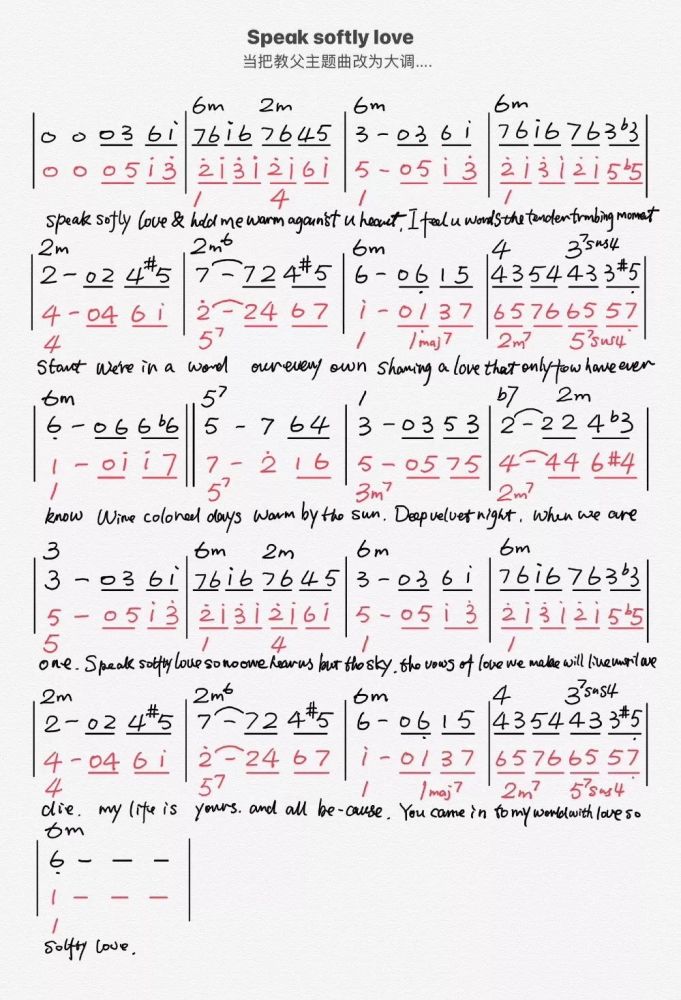 Speak softly love
当把教父主题曲改为大调....
6m 2m 6m 6m
0 0 03 6i 76i6 7645 3 - 03 6i 76i6 763b3
0 0 05 i3 2i3i 2i6i 5 - 05 i3 2i3i 2i5b5
1 4 1 1
speak softly love & hold me warm against u heart, I feel u words the tender trmbing momet
2m 2m6 6m 4 37sus4
2 - 02 4#5 7 - 72 4#5 6 - 06 15 4354 433#5
4 - 04 6i 2 - 24 67 i - 01 37 6576 6557
4 57 1 1maj7 2m7 57sus4
start We're in a word our every own sharing a love that only tow have ever
6m 57 1 b7 2m
6 - 06 6b6 5 - 7 64 3 - 03 53 2 - 22 4b3
1 - 0i i7 7 - 2 16 5 - 05 75 4 - 44 6#4
1 57 3m7 2m7
know Wine colored days warm by the sun. Deep velvet night, when we are
3 6m 2m 6m 6m
3 - 03 6i 76i6 7645 3 - 03 6i 76i6 763b3
5 - 05 i3 2i3i 2i6i 5 - 05 i3 2i3i 2i5b5
5 1 4 1 1
one. Speak softly love so no one hear us but the sky. the vows of love we make will live until we
2m 2m6 6m 4 37sus4
2 - 02 4#5 7 - 72 4#5 6 - 06 15 4354 433#5
4 - 04 6i 2 - 24 67 i - 01 37 6576 6557
4 57 1 1maj7 2m7 57sus4
die. my life is yours. and all be-cause. You came in to my world with love so
6m
6 - - -
1 - - -
1
softly love.